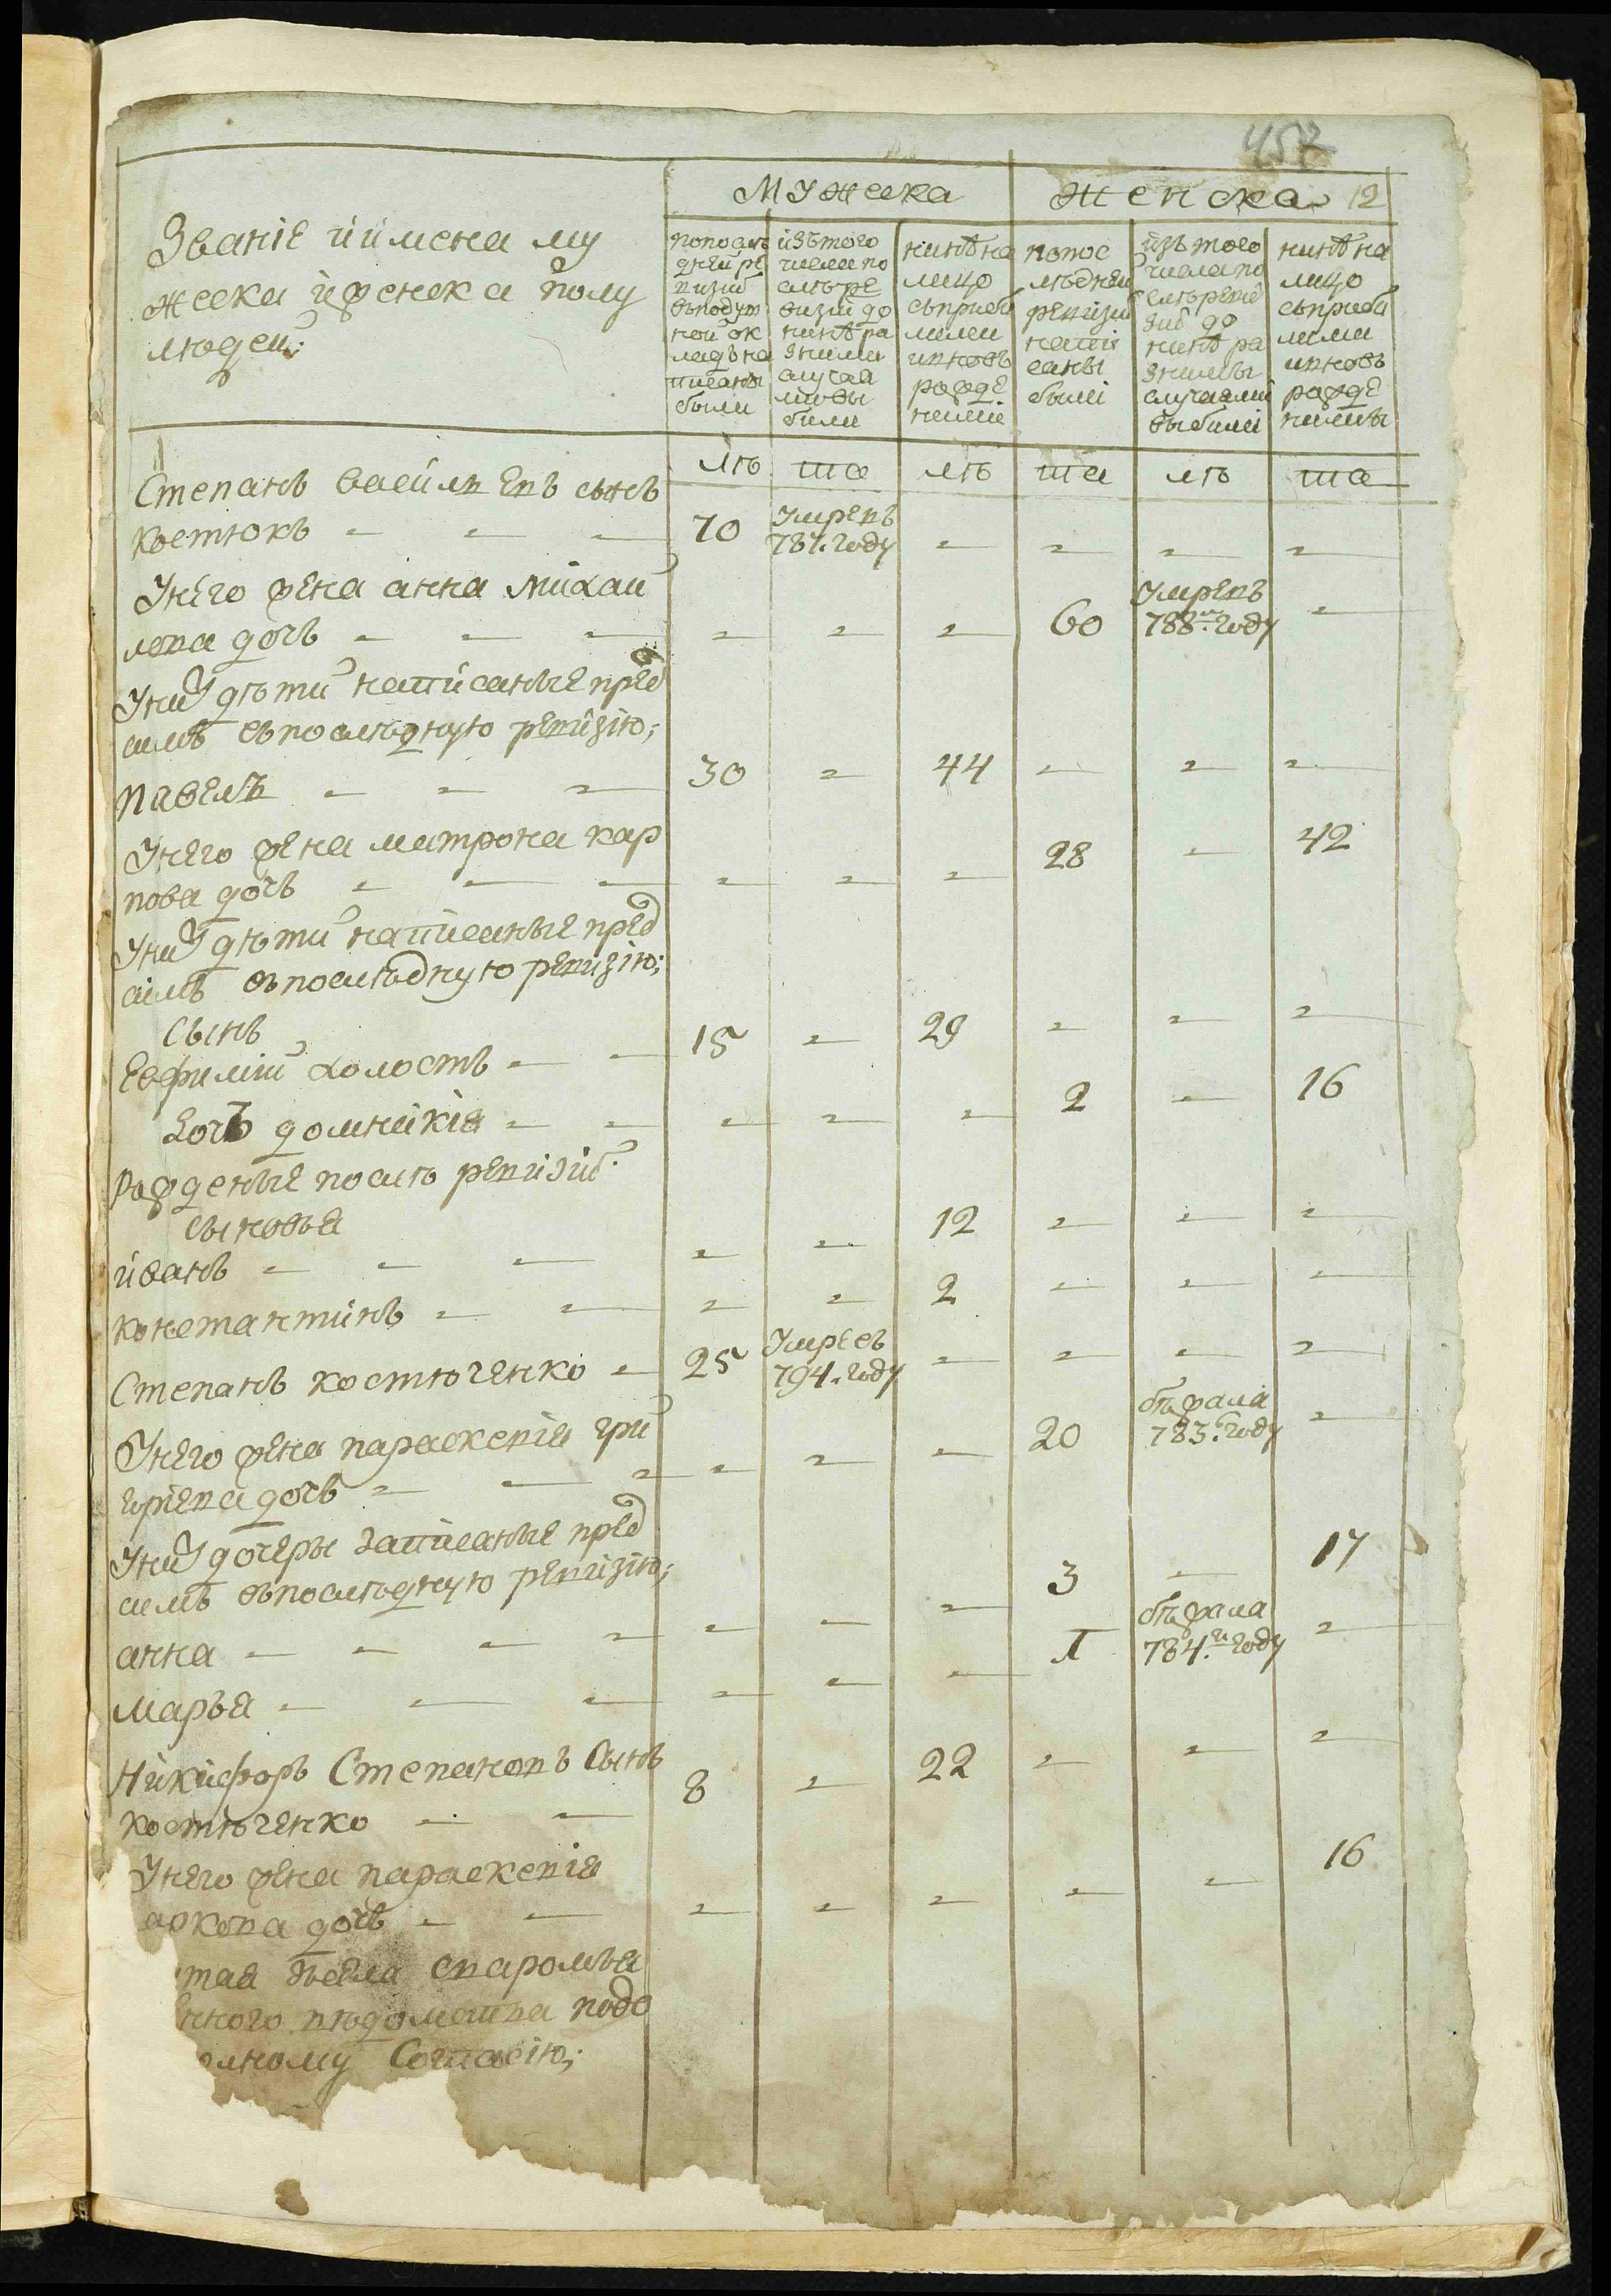 457
Мужеска Женска 12
Званіе и имена му
жеска и женска полу
людей:
попослѣ
дней ре
визіи
въподуш
ной ок
ладъ на
писаны
были
изътого
числа по
слѣ ре
визіи до
нинѣ ра
зними
случая
ми вы
били
нинѣ на
лицо
съприбі
лими
ивновь
рожде
ними
попос
лѣдней
ревизіи
напи
саны
были
изътого
числа по
слѣ реви
зіи до
нинѣ ра
знимы
случаями
выбили
нинѣ на
лицо
съприбі
лими
ивновь
рожде
нимы
лѣ та лѣ та лѣ та
Степанъ васильевъ сынъ
костюкъ 70 Умревъ 787. году
Унего жена анна михаи
лова дочь 60 Умревъ 788м. году
Уних дѣти написаные пред
симъ въпослѣднуюю ревизію;
Павелъ 30 44
Унего жена матрона кар
пова дочь 28 42
Уних дѣти написаные пред
симъ въпослѣдную ревизію;
Сынъ
Евфимій холостъ 15 29
дочь домникія 2 16
Рожденые послѣ ревизіи.
сыновья
иванъ 12
константинъ 2
Степанъ костюченко 25 Умревъ 794. году
Унего жена параскевія гри
горіева дочь 20 бѣжала 783. году
Уних дочеры записаные пред
симъ въпослѣдную ревизію;
анна 3 17
марья 1 бѣжала 784.го году
Никифоръ Степановъ Сынъ
костюченко 8 22
Унего жена параскевія
аркова дочь 16
тая
нного вѣдомства подо
олному Согласію;